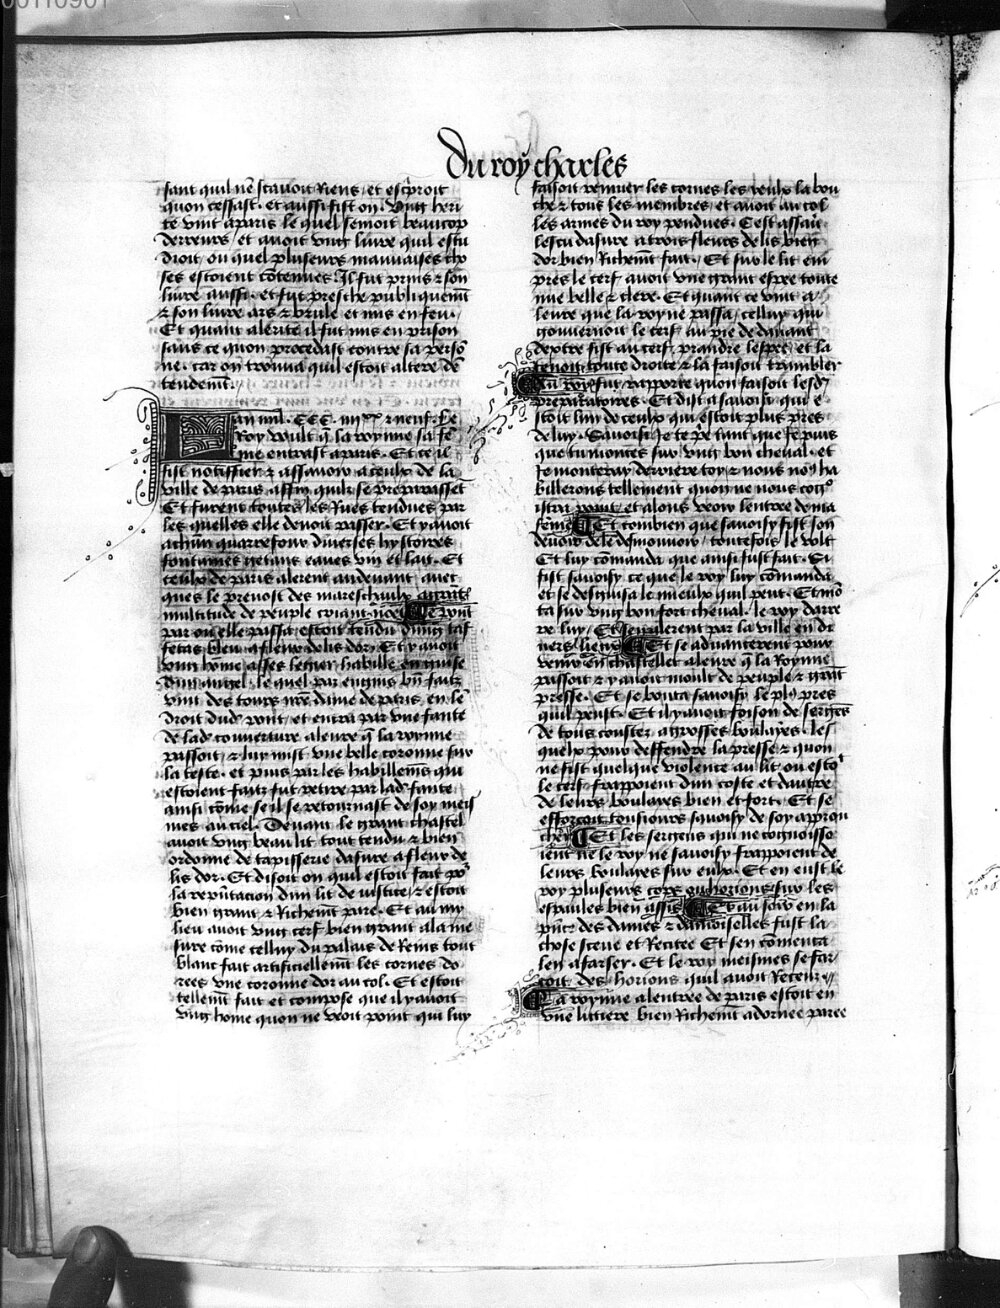 00110901
Du roy charles
sant quil ne scavoit Riens / et escproit
quon cessast. et aussi fist on. Ung heri
te vint a paris le quel semoit beaucop
derreurs / et avoit ung livre quil estu
droit / ou quel plusieurs mauvaises cho
ses estoient cõtenues. Il fut prins & son
livre aussi. et fut presche publiquemt
& son livre ars & brule et mis en feu.
Et quant a lerite il fut mis en prison
sans ce quon procedast contre sa perso
ne. car on trouva quil estoit altere dẽ
tendemt.
Lan mil. CCC. iiijxx & neuf. Le
Roy voult q̃ la royne sa fẽ
me entrast a paris. Et ce il
fist notiffier & assavoir a ceulx de la
ville de paris affin quilz se preparassẽt
Et furent toutes les Rues tendues par
les quelles elle devoit passer. Et y avoit
a chũn quarrefour diverses hystoires
fontaines getans eaues vin et lait. Et
ceulx de paris alerent au devant avec
ques le prevost des mareschaulx a grãt
multitude de peuple criant noel Le pont
par ou elle passa estoit tendu dung taf
fetas bleu a fleurs de lis dor. Et y avoit
ung home asses legier habille en guise
dun angel. le quel par engins bñ faiz
vint des tours nr̃e dame de paris en lẽ
droit dud pont / et entra par une fante
de lad couverture a leure q̃ la royne
passoit / & luy mist une belle coronne sur
la teste. et puis par les habillemẽs qui
estoient faiz fut retire par lad fante
ainsi cõme se il se retournast de soy meis
mes au ciel. Devant le grant chastel
avoit ung beau lit tout tendu & bien
ordonne de tapisserie dasure a fleur de
lis dor. Et disoit on quil estoit fait pour
la reputacion dun lit de iustice / & estoit
bien grant & Richemt pare. Et au my
lieu avoit ung cerf bien grant a la me
sure cõme celluy du palais de Reins tout
blanc fait artificiellemt les cornes do
rees une coronne dor au col. Et estoit
tellemt fait et compose que il y avoit
ung home quon ne veoit point qui luy
faisoit remuer les cornes les yeulx la bou
che & tous les membres / et avoit au col
les armes du roy pendues. Cest assavoir
lescu dasure a trois fleurs de lis bien
dor bien Richemt fait. Et sur le lit em
pres le cerf avoit une grant espee toute
nue belle & clere. Et quant ce vint a
leure que la royne passa / celluy qui
gouvernoit le cerf / au pie de davant
dextre fist au cerf prandre lespee et la
tenoit toute droite & la faisoit trambler
Au roy fut rapporte quon faisoit lesd
preparatoires. Et dist a savoisy qui e
stoit lun de ceulx qui estoit plus pres
de luy. Savoisy Je te pẽ tant que je puis
que tu montes sur ung bon cheval / et
Je monteray derriere toy & nous no9 ha
billerons tellement quon ne nous cog
istra point / et alons veoir lentree de ma
femme Et combien que savoisy fist son
devoir de le desmouvoir / toutefois le volt
Et luy cõmanda que ainsi fust fait. Si
fist savoisy ce que le roy luy cõmanda
et se desguisa le mieulx quil peut. Et mõ
ta sur ung bon fort cheval. le roy darie
re luy / Et sen alerent par la ville en di
vers lieux Et se advancerent pour
venir en chastellet a leure q̃ la Royne
passoit & y avoit moult de peuple & grãt
presse. Et se bouta savoisy le pl9 pres
quil peust. Et il y avoit foison de serges
de tous coustez a grosses boulayes. les
quelx pour deffendre la presse & quon
ne fist quelque violence au lit ou estoit
le cerf. frappoient dun coste et dautre
de leurs boulayes bien et fort. Et se
efforcoit tousiours savoisy de soy appro
cher Et les sergens qui ne cognoisso
ient ne le roy ne savoisy frappoient de
leurs boulayes sur eulx. Et en eust le
roy plusieurs cops & horions sur les
espaules bien assis Et au soir en la
pñce des dames & damoiselles fust la
chose sceue et Recitee Et sen cõmenca
len a farser. Et le roy meismes se far
coit des horions quil avoit Receuz.
La royne a lentree de paris estoit en
une littiere bien Richemt adornee paree